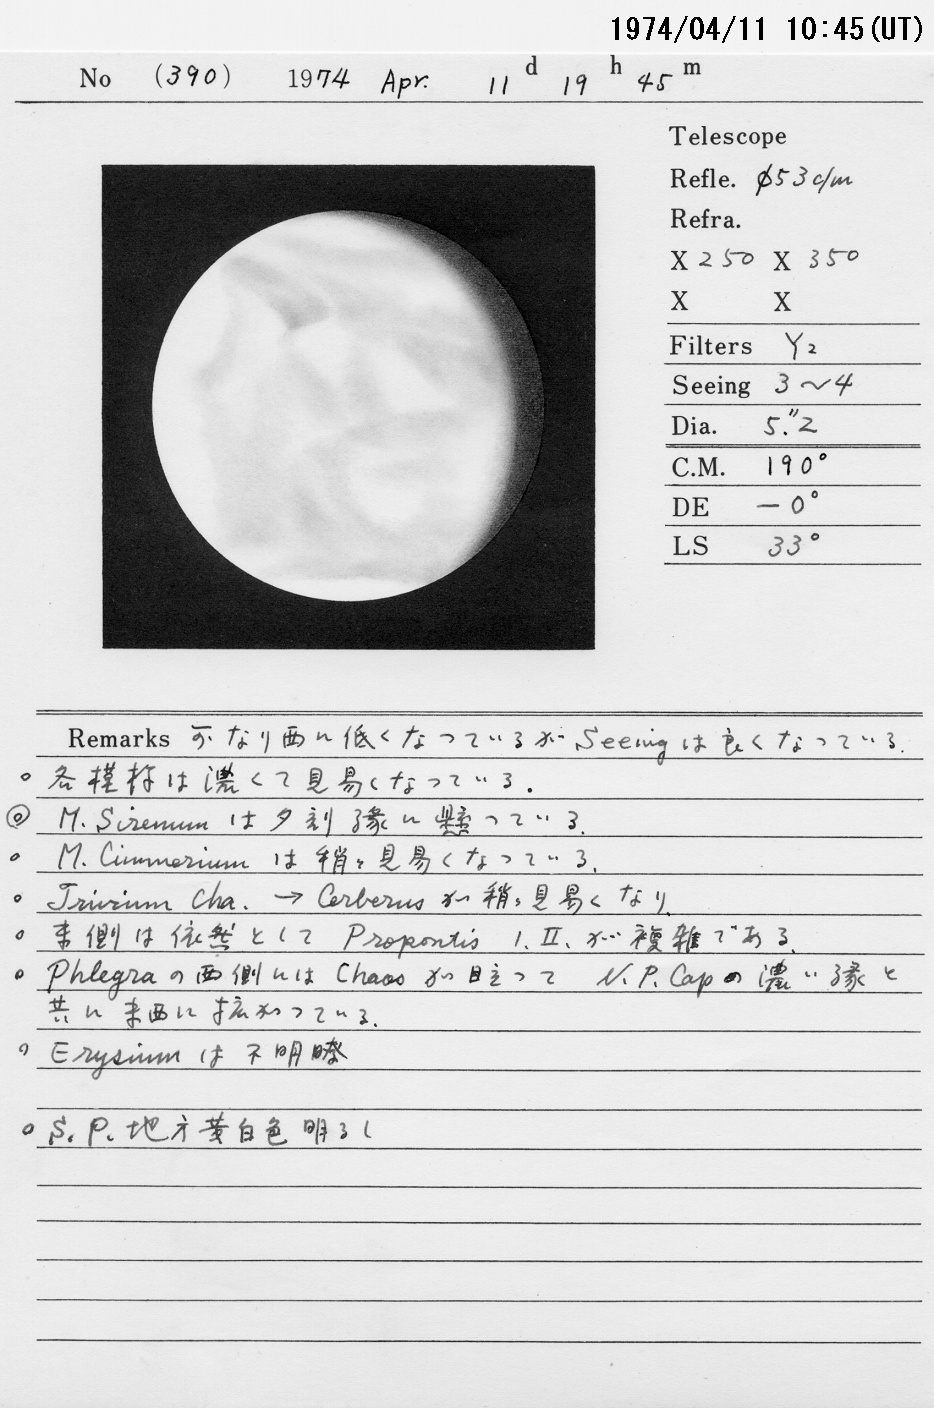 1974/04/11 10:45(UT)
No (390) 1974 Apr. 11 d 19 h 45 m
Telescope
Refle. φ53c/m
Refra.
X 250 X 350
X X
Filters Y2
Seeing 3~4
Dia. 5."2
C.M. 190°
DE −0°
LS 33°
Remarks 可なり西に低くなっているが Seeing は良くなっている.
○ 各模様は濃くて見易くなっている.
◎ M. Sirenum は夕刻縁に懸っている.
○ M. Cimmerium は稍々見易くなっている.
○ Trivium Cha. → Cerberus が稍々見易くなり,
○ 東側は依然として Propontis I. II. が複雑である.
○ Phlegra の西側には Chaos が目立って N.P.Cap の濃い縁と
共に東西に拡がっている.
○ Erysium は不明瞭
○ S.P. 地方黄白色明るし